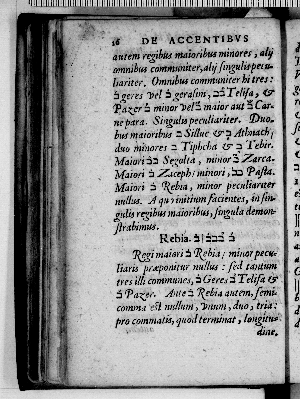 16 DE ACCENTIBVS
autem regibus maioribus minores, alij
omnibus communiter, alij singulis pecu-
liariter. Omnibus communiter hi tres:
geres vel geraſim, Teliſa, &
Pazer minor vel maior aut Car-
ne para. Singulis peculiariter. Duo-
bus maioribus Silluc & Athnach,
duo minores Tiphcha & Tebir.
Maiori Segolta, minor Zarca.
Maiori Zaceph: minori, Paſta.
Maiori Rebia, minor peculiariter
nullus. A quo initium facientes, in ſin-
gulis regibus maioribus, ſingula demon-
ſtrabimus.
Rebia.
Regi maiori Rebia; minor pecu-
liaris præponitur nullus: ſed tantum
tres illi communes, Geres Teliſa &
Pazer. Ante Rebia autem, ſemi-
comma eſt nullum, vnum, duo, tria:
pro commatis, quod terminat, longitu-
dine.